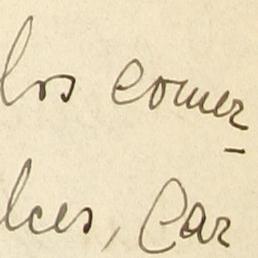 los comer-
lces, Car